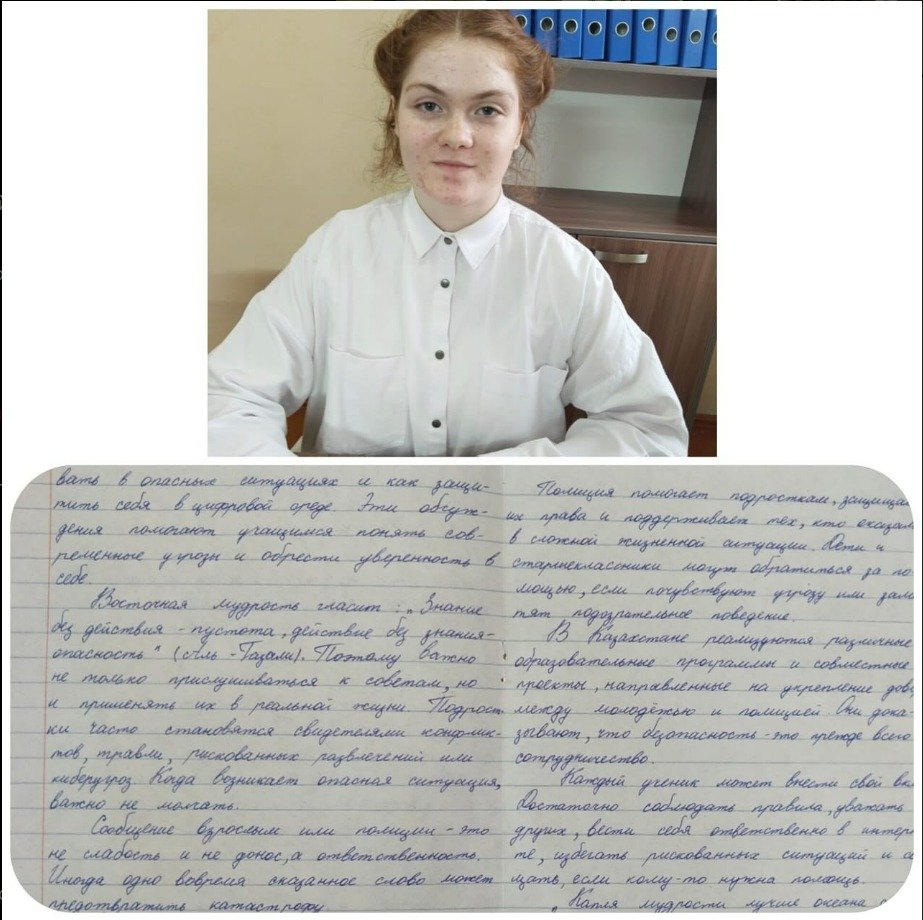 вать в опасных ситуациях и как защи-
тить себя в цифровой среде. Эти обсуж-
дения помогают учащимся понять сов-
ременные угрозы и обрести уверенность в
себе.
Восточная мудрость гласит: „Знание
без действия - пустота, действие без знания-
опасность" (Аль-Газали). Поэтому важно
не только прислушиваться к советам, но
и применять их в реальной жизни. Подрост-
ки часто становятся свидетелями конфлик-
тов, травли, рискованных развлечений или
киберугроз. Когда возникает опасная ситуация,
важно не молчать.
Сообщение взрослым или полиции - это
не слабость и не донос, а ответственность.
Иногда одно вовремя сказанное слово может
предотвратить катастрофу.
Полиция помогает подросткам, защищая
их права и поддерживает тех, кто оказал
в сложной жизненной ситуации. Дети и
старшеклассники могут обратиться за по
мощью, если почувствуют угрозу или заме
тят подозрительное поведение.
В Казахстане реализуются различные
образовательные программы и совместные
проекты, направленные на укрепление дове
между молодёжью и полицией. Они дока-
зывают, что безопасность - это прежде всего
сотрудничество.
Каждый ученик может внести свой вкл
Достаточно соблюдать правила, уважать
других, вести себя ответственно в интерн
те, избегать рискованных ситуаций и
щать, если кому-то нужна помощь.
„Капля мудрости лучше океана